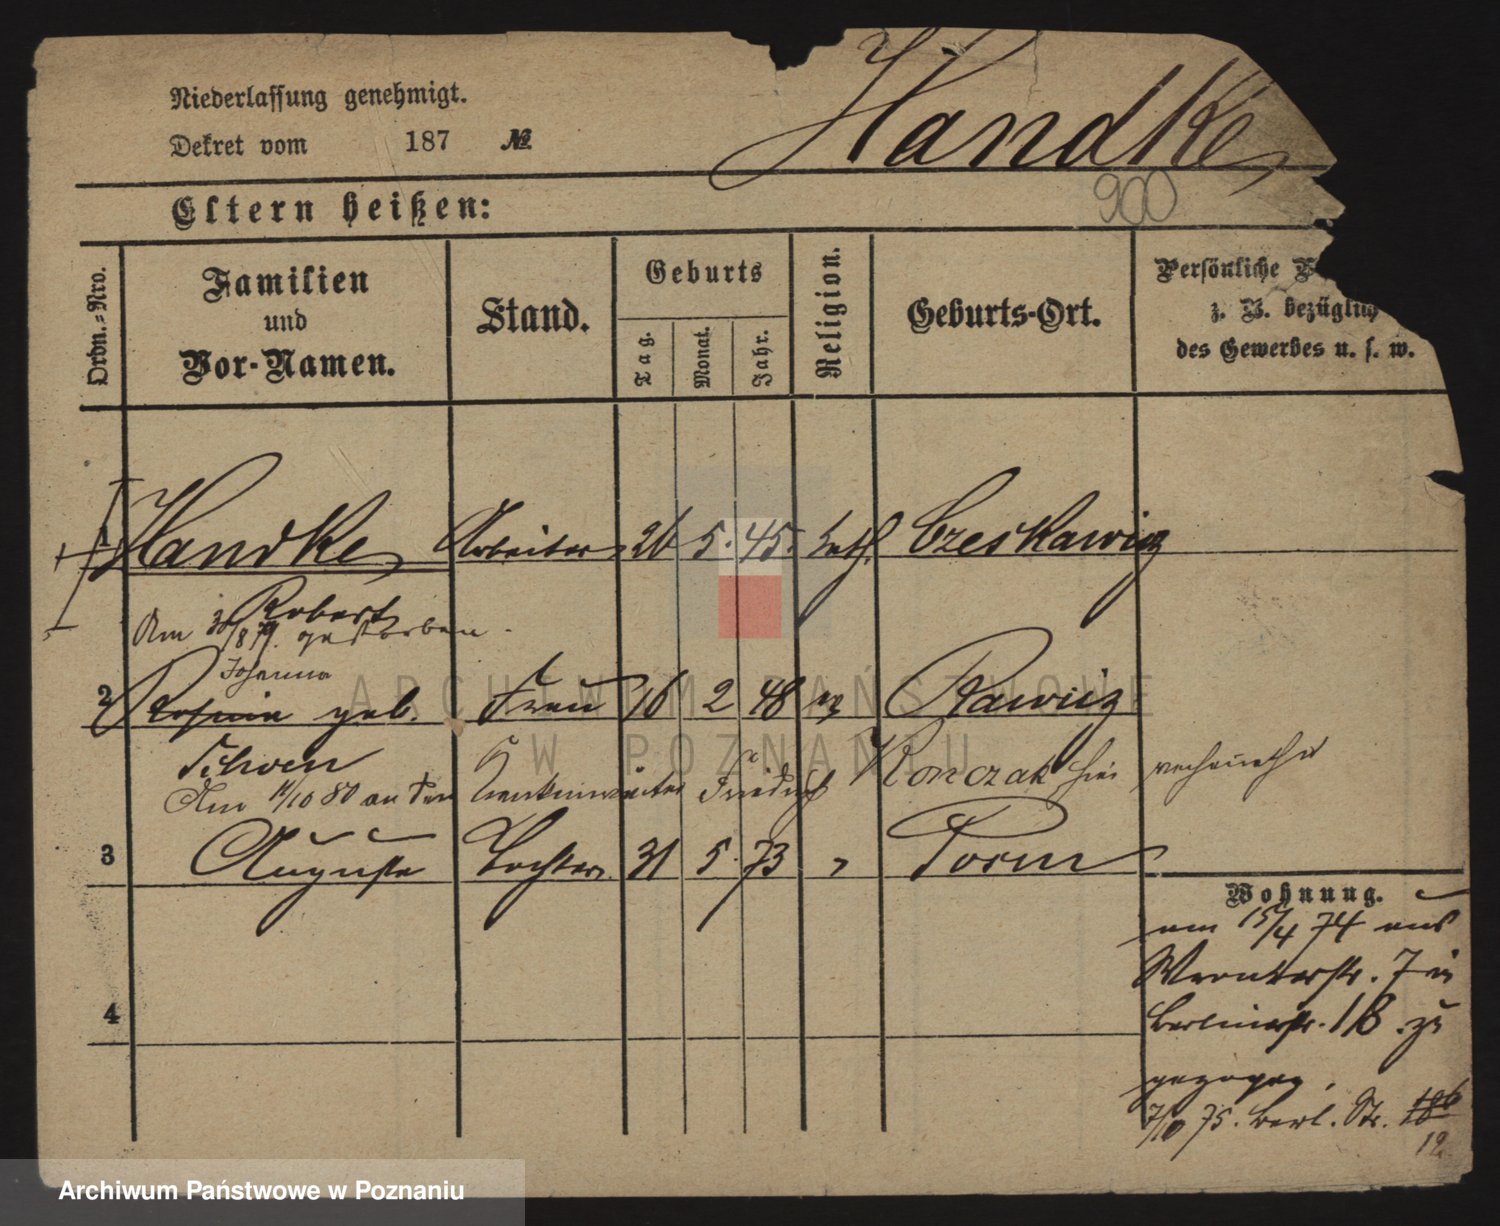 Handke
Niederlassung genehmigt.
Dekret vom 187 №
900
Eltern heißen:
Ordn.-Nro.
Familien
und
Vor-Namen.
Stand.
Geburts
Tag.
Monat.
Jahr.
Religion.
Geburts-Ort.
Persönliche
z. B. bezüglich
des Gewerbes u. s. w.
1 Handke Arbeiter 26 5. 45. kath.
Robert
Am 30/8 79. gestorben.
Johanna
2 Rosina geb. Frau 16 2 48 Rawicz
Schoen
Am 11/10 80 an den Krankenwärter Friedrich Konczak hier verheirathet
3 Auguste Tochter 31 5. 73 Posen
Wohnung.
am 15/4 74 aus
Wronkerstr. 7 in
Berlinerstr. 18 zu
gezogen,
7/10 75. Berl. Str. 18b
19.
4
ARCHIWUM PAŃSTWOWE
W POZNANIU
Archiwum Państwowe w Poznaniu